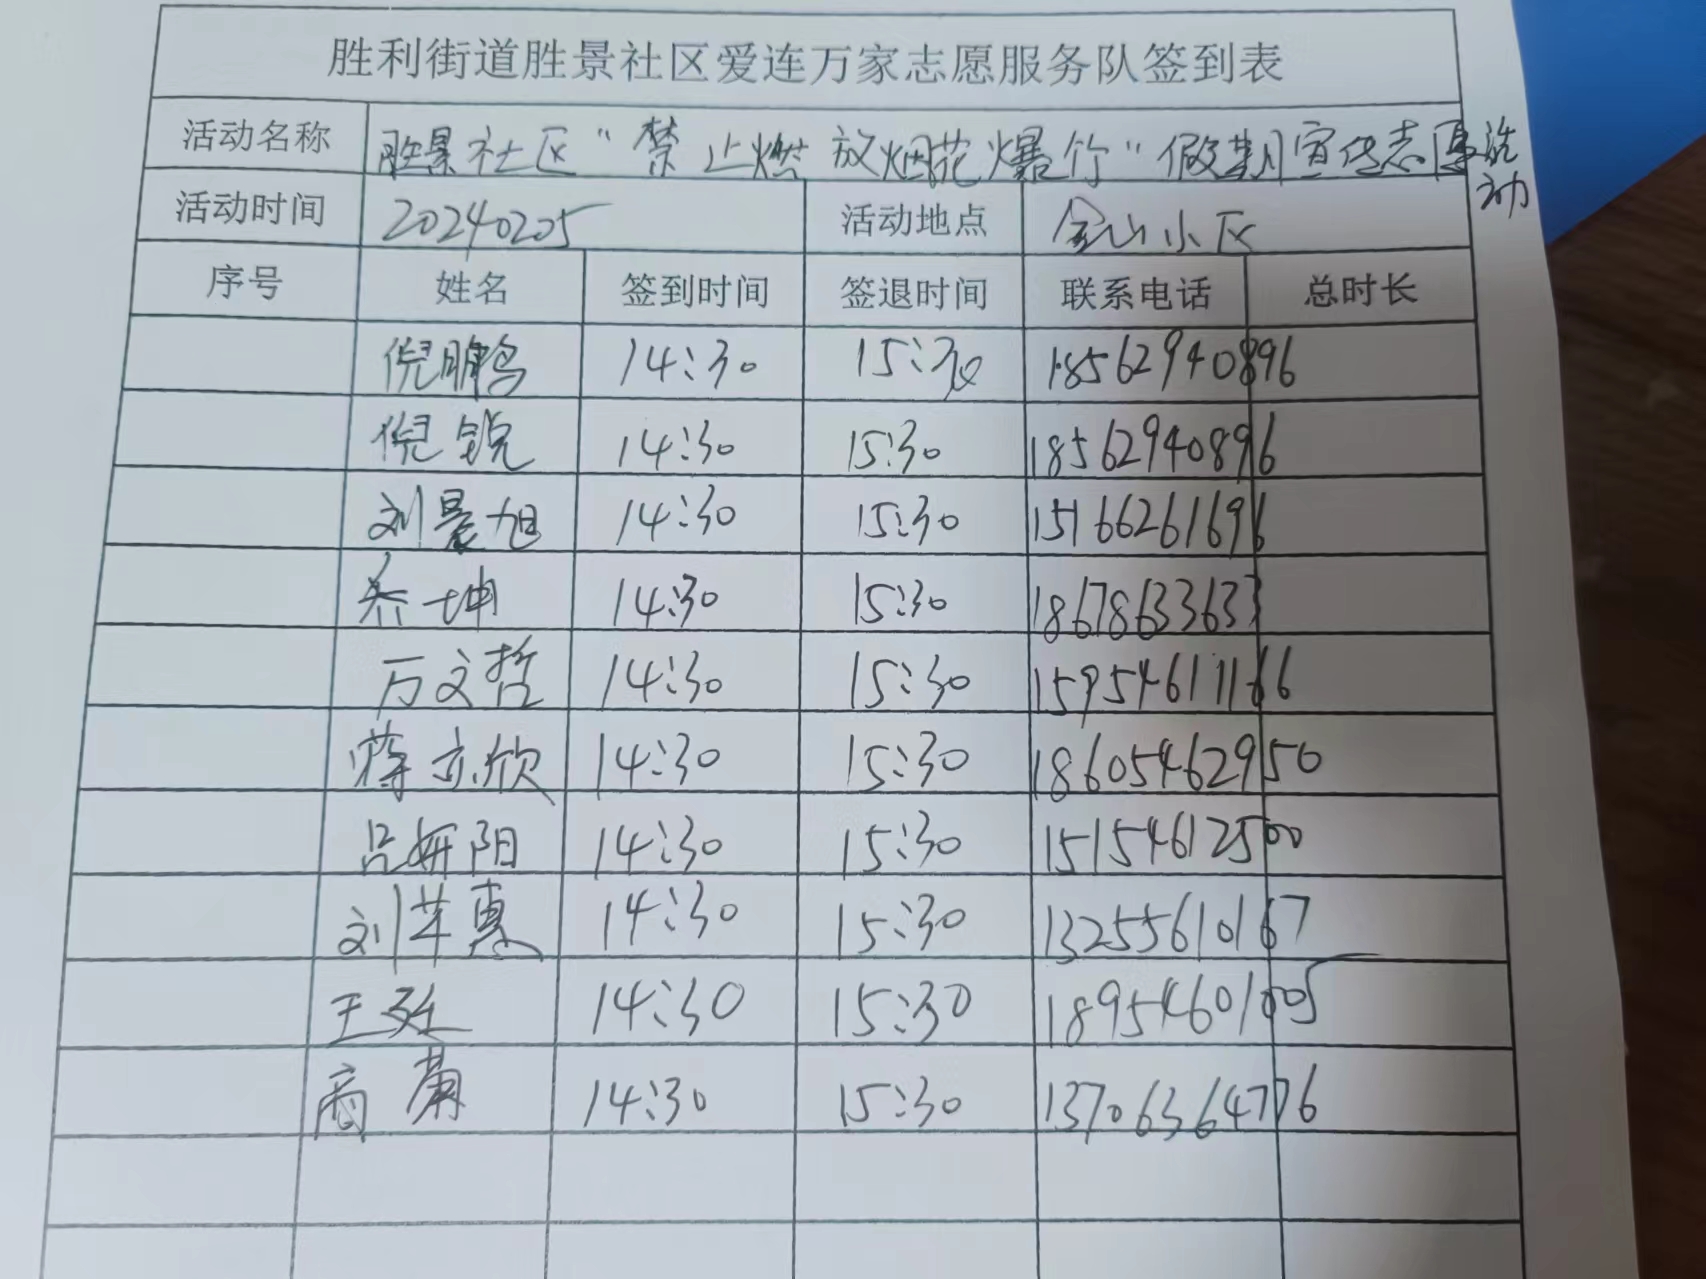 胜利街道胜景社区爱连万家志愿服务队签到表
活动名称 胜景社区"禁止燃放烟花爆竹"假期宣传志愿活动
活动时间 20240205 活动地点 金山小区
序号 姓名 签到时间 签退时间 联系电话 总时长
倪鹏鸣 14:30 15:30 18562940896
倪锐 14:30 15:30 18562940896
刘晨旭 14:30 15:30 15166261696
乔坤 14:30 15:30 18678633633
万文哲 14:30 15:30 15954611166
蒋亦欣 14:30 15:30 18605462950
吕妍阳 14:30 15:30 15154612500
刘苹惠 14:30 15:30 13255610167
王廷 14:30 15:30 18954601005
商 14:30 15:30 13706364776